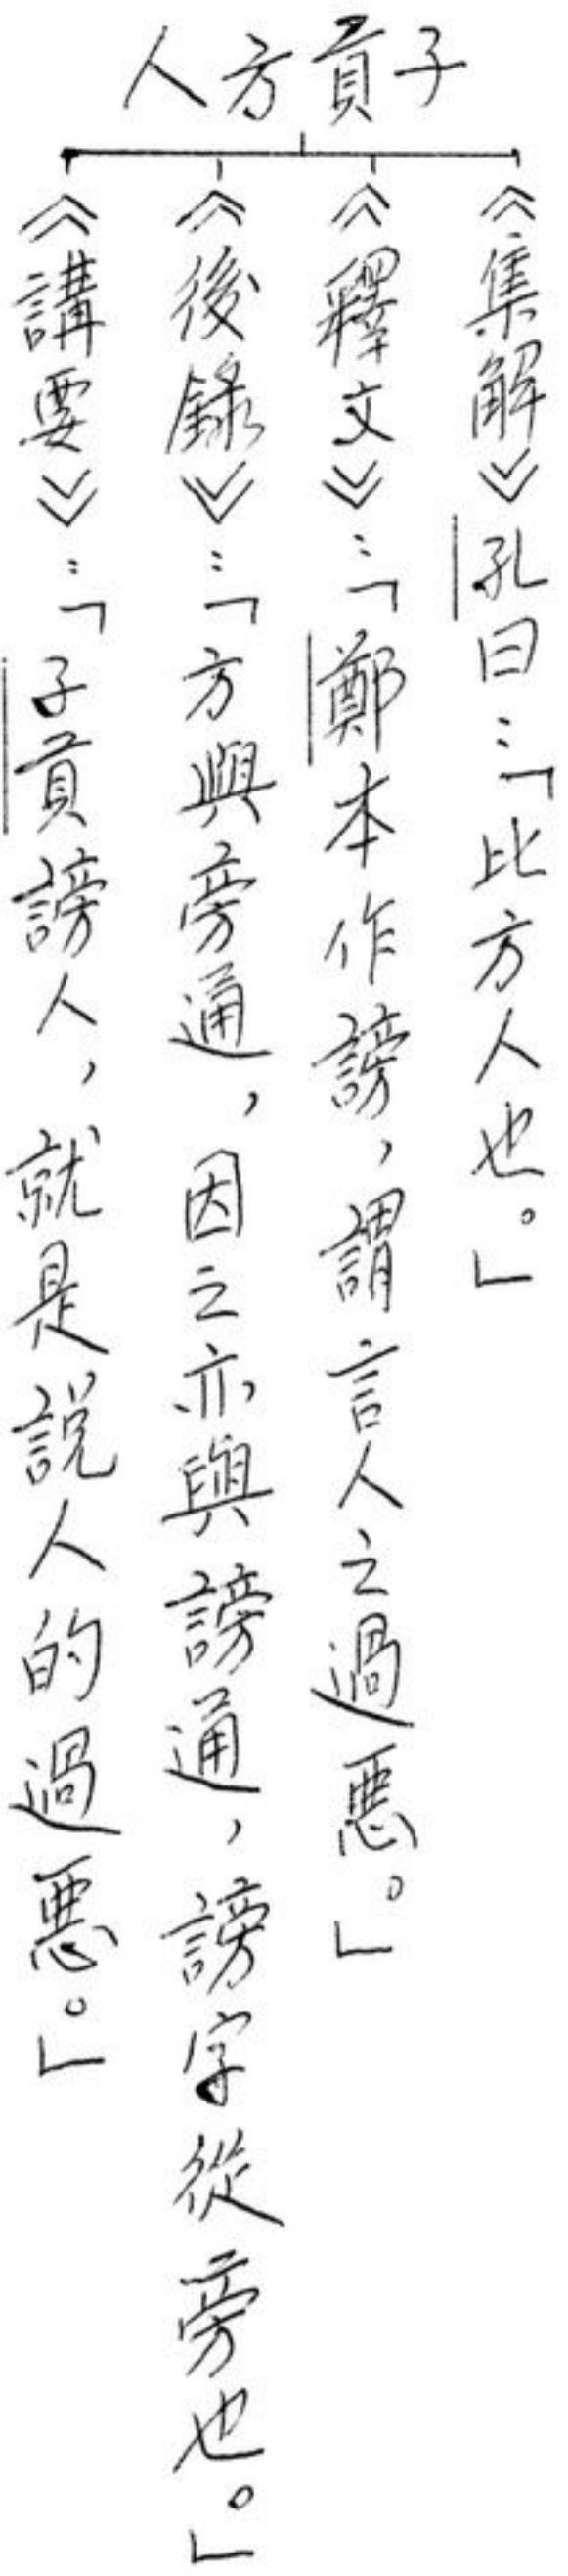 子貢方人
《集解》孔曰：「比方人也。」
《釋文》：「鄭本作謗，謂言人之過惡。」
《後錄》：「方與旁通，因之亦與謗通，謗字從旁也。」
《講要》：「子貢謗人，就是說人的過惡。」